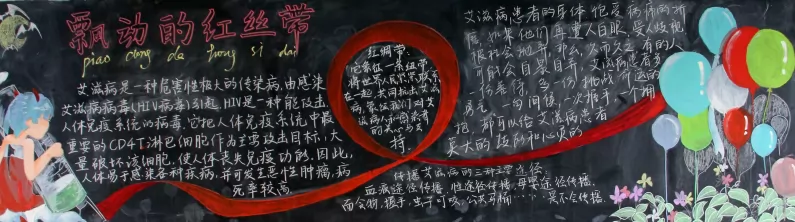 飘动的红丝带
piao dong de hong si dai
艾滋病是一种危害性极大的传染病,由感染
艾滋病病毒(HIV病毒)引起,HIV是一种能攻击
人体免疫系统的病毒。它把人体免疫系统中最
重要的CD4T淋巴细胞作为主要攻击目标,大
量破坏该细胞,使人体丧失免疫功能。因此,
人体易于感染各种疾病,并可发生恶性肿瘤,病
死率较高。
红绸带:
它象征
一条纽带
将世界人民
在一起,共同抗击艾滋
病,象征我们对艾
滋病人和感染者
的关心与支
持。
艾滋病患者的身体饱受病痛的折
磨,如果他们再遭人白眼,受人歧视
被社会抛弃,那么,久而久之,有的人
可能会自暴自弃。艾滋病患者多
一份关怀,多一份挑战命运的
勇气。一句问候,一次握手,一个拥
抱,都可以给艾滋病患者
莫大的鼓励和心灵的
传播艾滋病的三种主要途径:
血液途径传播,性途径传播,母婴途径传播。
而食物,握手,虫子叮咬,公共马桶……是不会传播。